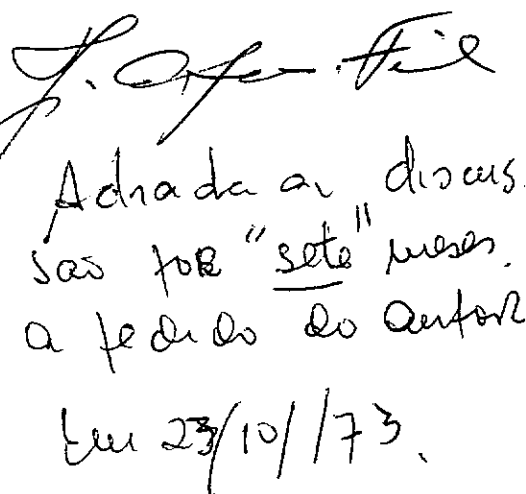 Adiada a discus-
são por "sete" meses.
a pedido do autor
Em 23/10/73.